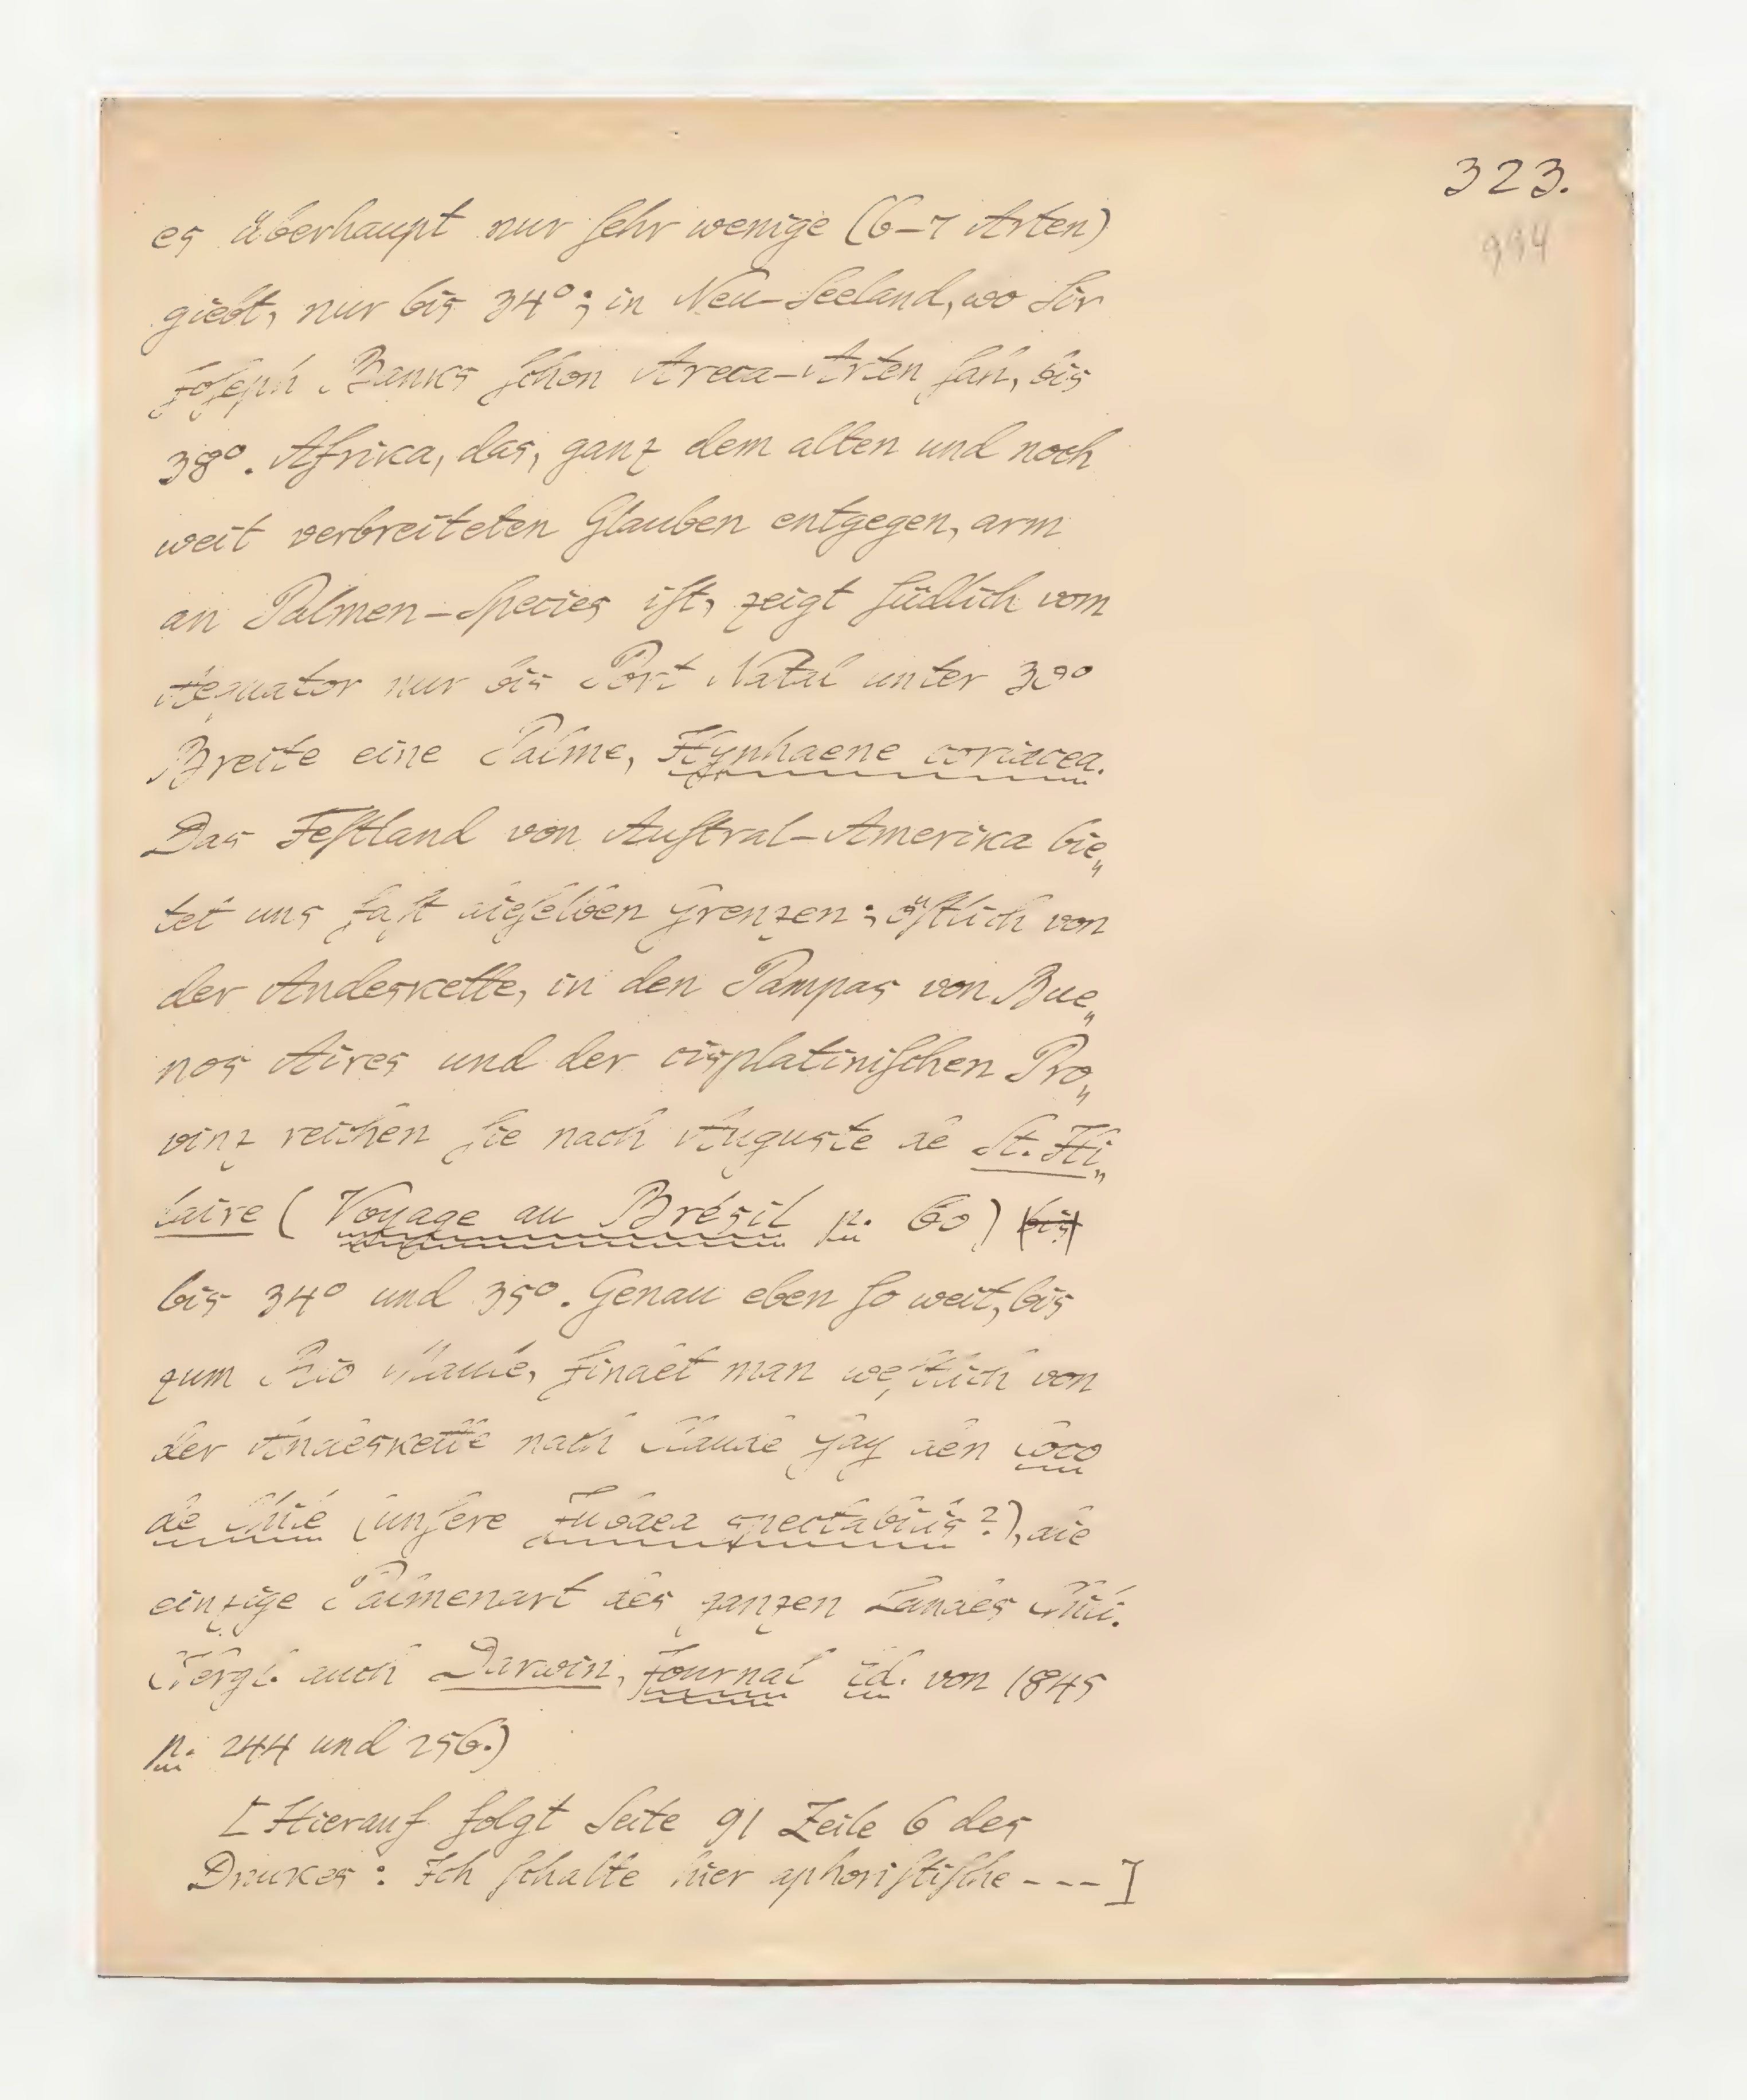 323.
994
es überhaupt nur sehr wenige (6-7 Arten)
giebt, nur bis 34°; in Neu-Seeland, wo Sir
Joseph Banks schon Areca-Arten sah, bis
38°. Afrika, das, ganz dem alten und noch
weit verbreiteten Glauben entgegen, arm
an Palmen-Species ist, zeigt südlich vom
Aequator nur bis Port Natal unter 30°
Breite eine Palme, Hyphaene coriacea.
Das Festland von Austral-Amerika bie„
tet uns fast dieselben Grenzen: östlich von
der Andeskette, in den Pampas von Bue„
nos Aires und der cisplatinischen Pro„
vinz reichen sie nach Auguste de St. Hi„
laire (Voyage au Brésil p. 60) bis
bis 34° und 35°. Genau eben so weit, bis
zum Rio Maule, findet man westlich von
der Andeskette nach Claude Gay den coco
de Chile (unsere Jubaea spectabilis?), die
einzige Palmenart des ganzen Landes Chili.
Vergl. auch Darwin, Journal ed. von 1845
p. 244 und 256.)
[Hierauf folgt Seite 91 Zeile 6 des
Druckes: Ich schalte hier aphoristische ---]